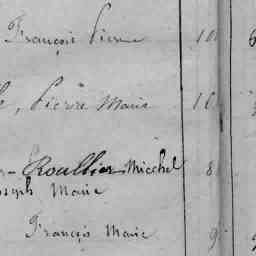 François Pierre 10
, Pierre Marie 10
Roullier Micchel 8
oseph Marie
François Marie 9